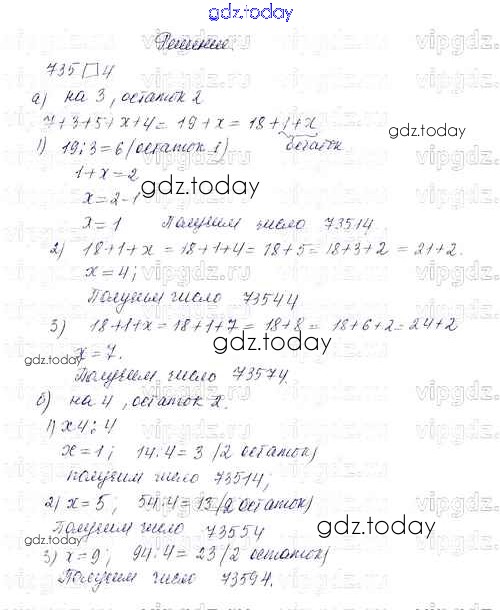 gdz.today
Решение.
735□4
а) на 3, остаток 2
7+3+5+x+4= 19+x = 18+1+x
1) 19:3=6 (остаток 1) остаток
1+x=2
x=2-1 gdz.today
x=1 Получим число 73514
2) 18+1+x = 18+1+4= 18+5= 18+3+2 = 21+2.
x=4;
Получим число 73544
3) 18+1+x=18+1+7 = 18+8 = 18+6+2=24+2
gdz.today x=7. gdz.today
Получим число 73574.
б) на 4, остаток 2.
1) x4:4
x=1; 14:4=3 (2 остаток) gdz.today
получим число 73514;
2) x=5; 54:4=13 (2 остаток)
Получим число 73554 gdz.today
gdz.today
3) x=9; 94:4=23 (2 остаток)
Получим число 73594.